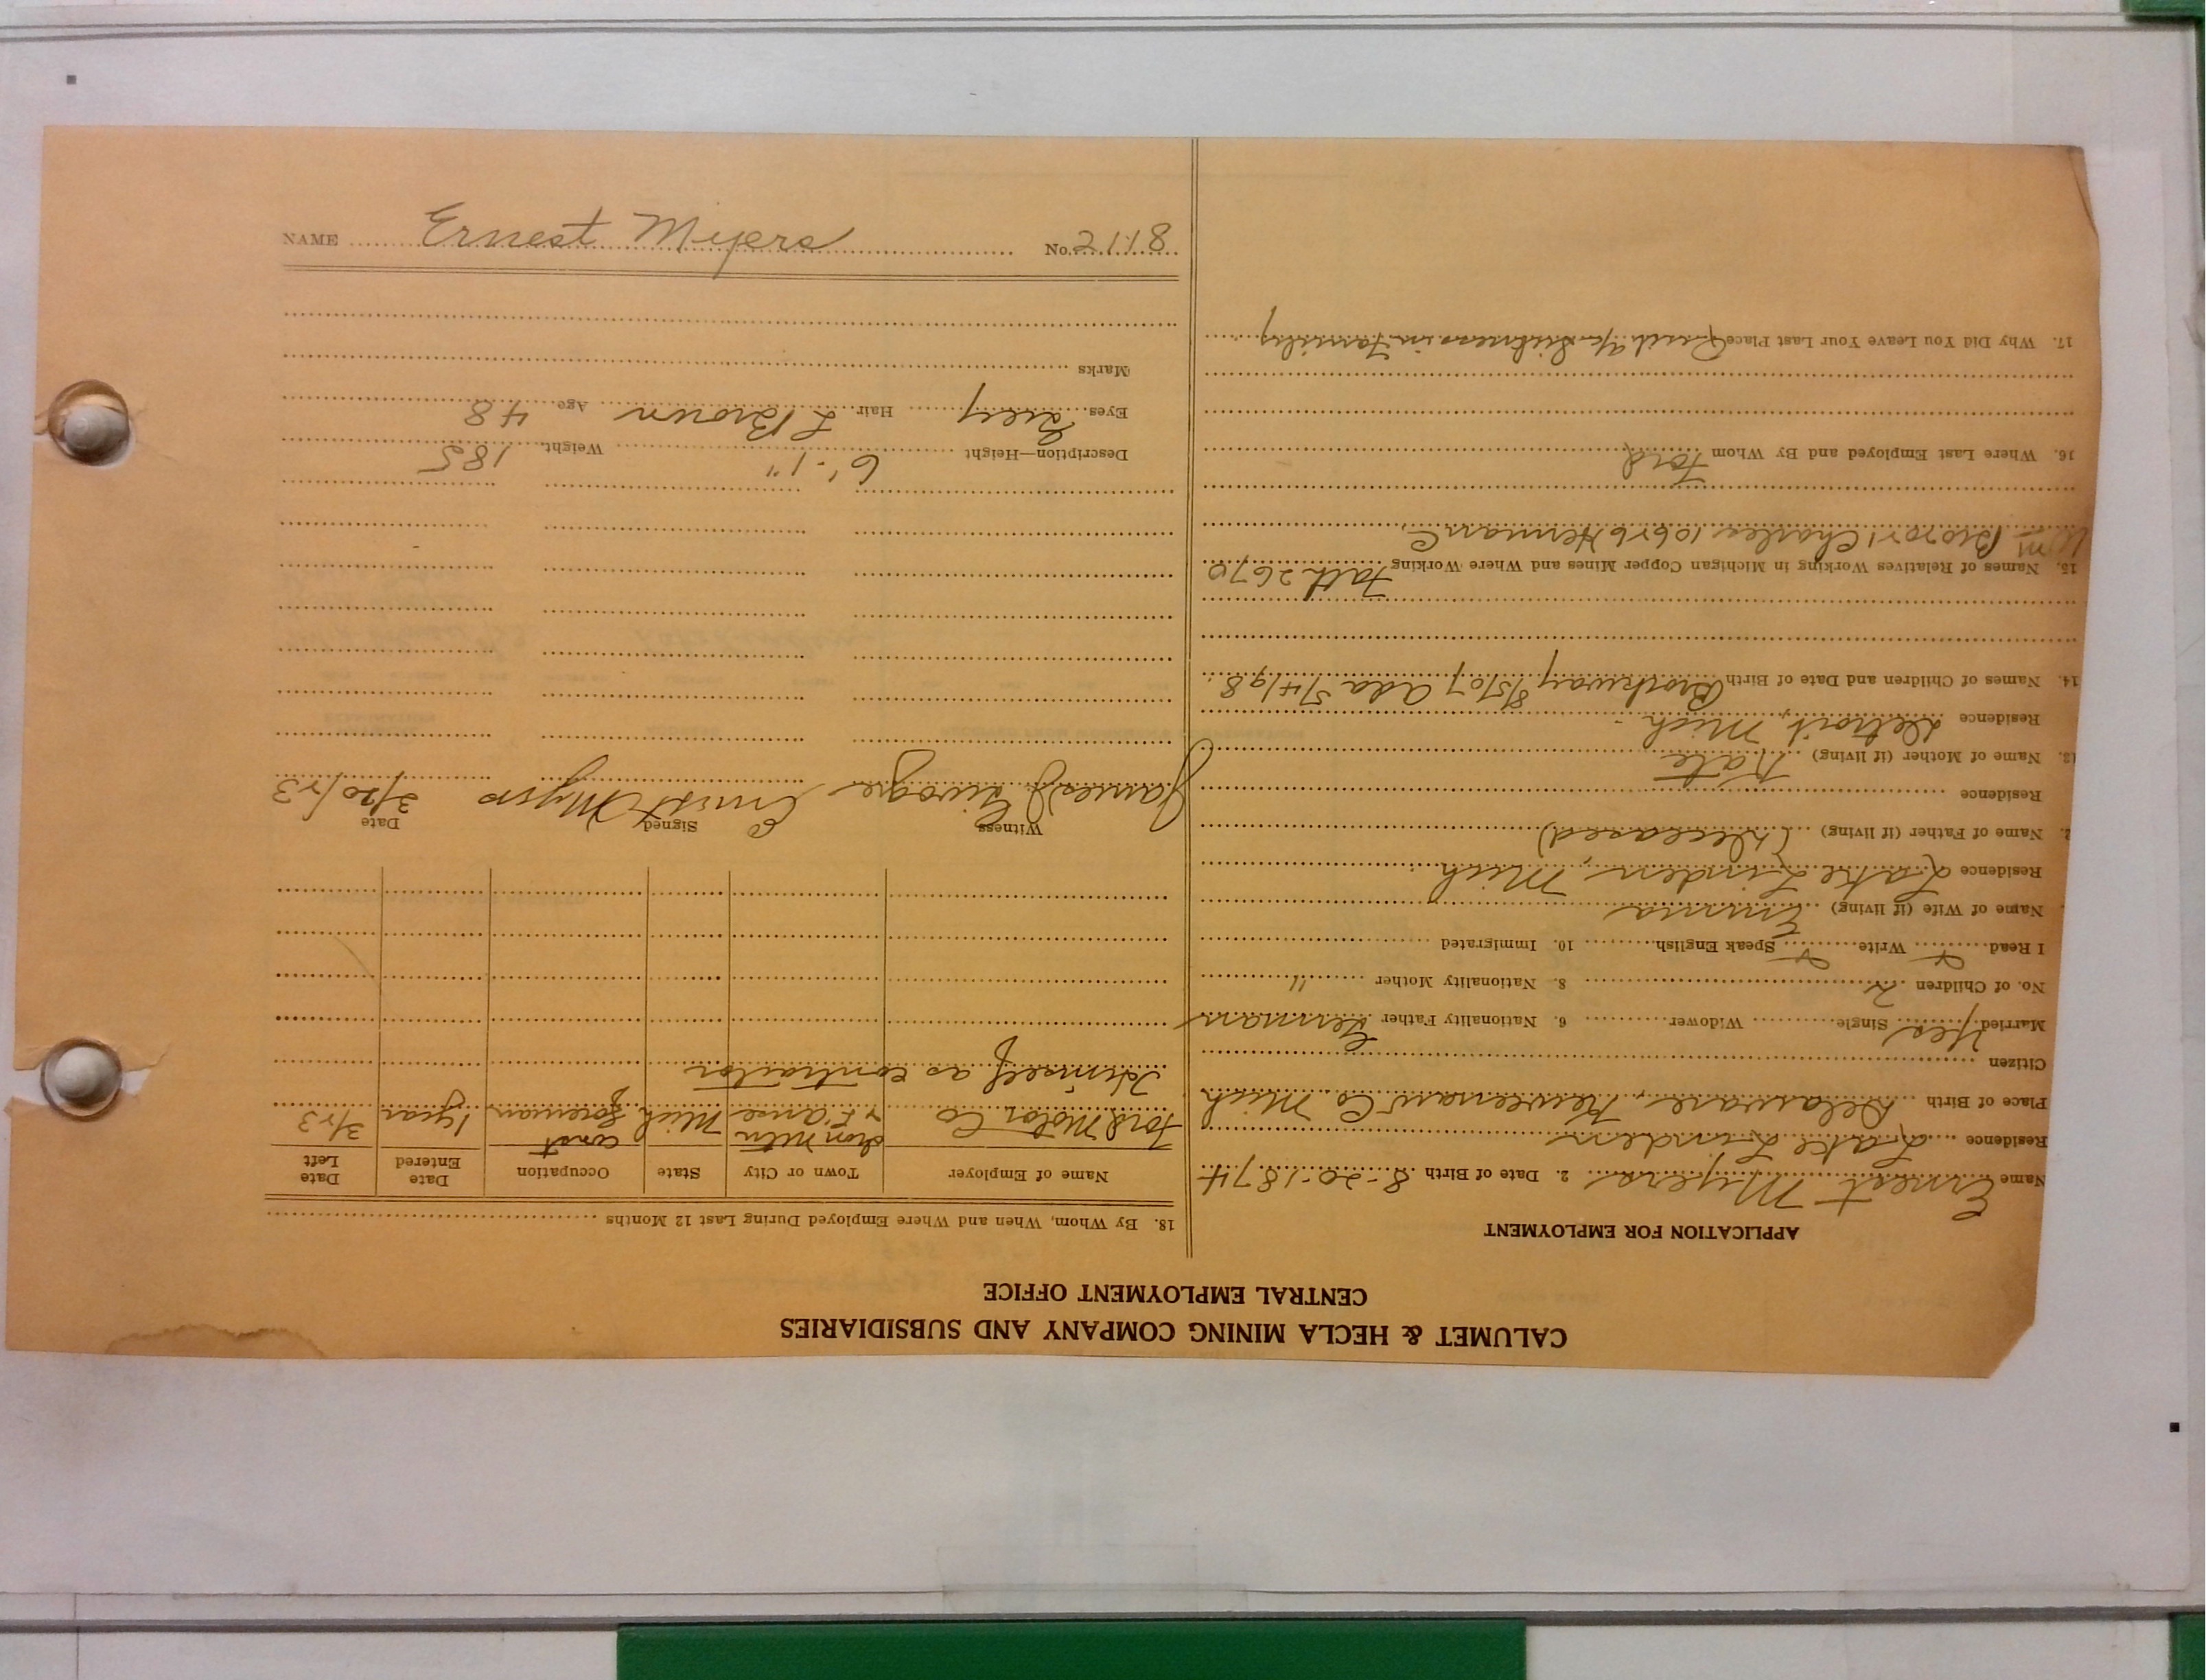 CALUMET & HECLA MINING COMPANY AND SUBSIDIARIES
CENTRAL EMPLOYMENT OFFICE
APPLICATION FOR EMPLOYMENT
Name Ernest Myers 2. Date of Birth 8-20-1874
Residence Lake Linden
Place of Birth Delaware, Keweenaw Co. Mich
Citizen
Married Yes Single Widower 6. Nationality Father German
No. of Children 2 8. Nationality Mother "
I Read Write Speak English 10. Immigrated
Name of Wife (if living) Emma
Residence Lake Linden, Mich
2. Name of Father (if living) (Deceased)
Residence
13. Name of Mother (if living) Kate
Residence Detroit, Mich -
14. Names of Children and Date of Birth Brockway 8/5/07 Ada 5/4/98
15. Names of Relatives Working in Michigan Copper Mines and Where Working Fath 2670
Wm Bro 7071 Charles 10676 Herman C
16. Where Last Employed and By Whom Ford
17. Why Did You Leave Your Last Place Sickness in family
18. By Whom, When and Where Employed During Last 12 Months
Name of Employer Town or City State Occupation Date Entered Date Left
Ford Motor Co Iron Mtn & Lanse Mich const foreman 1 year 3/23
Himself as contractor
Witness Signed Date
James Ernest Myers 3/20/23
Description—Height 6'-1" Weight 185
Eyes Grey Hair L Brown Age 48
Marks
NAME Ernest Myers No. 2118